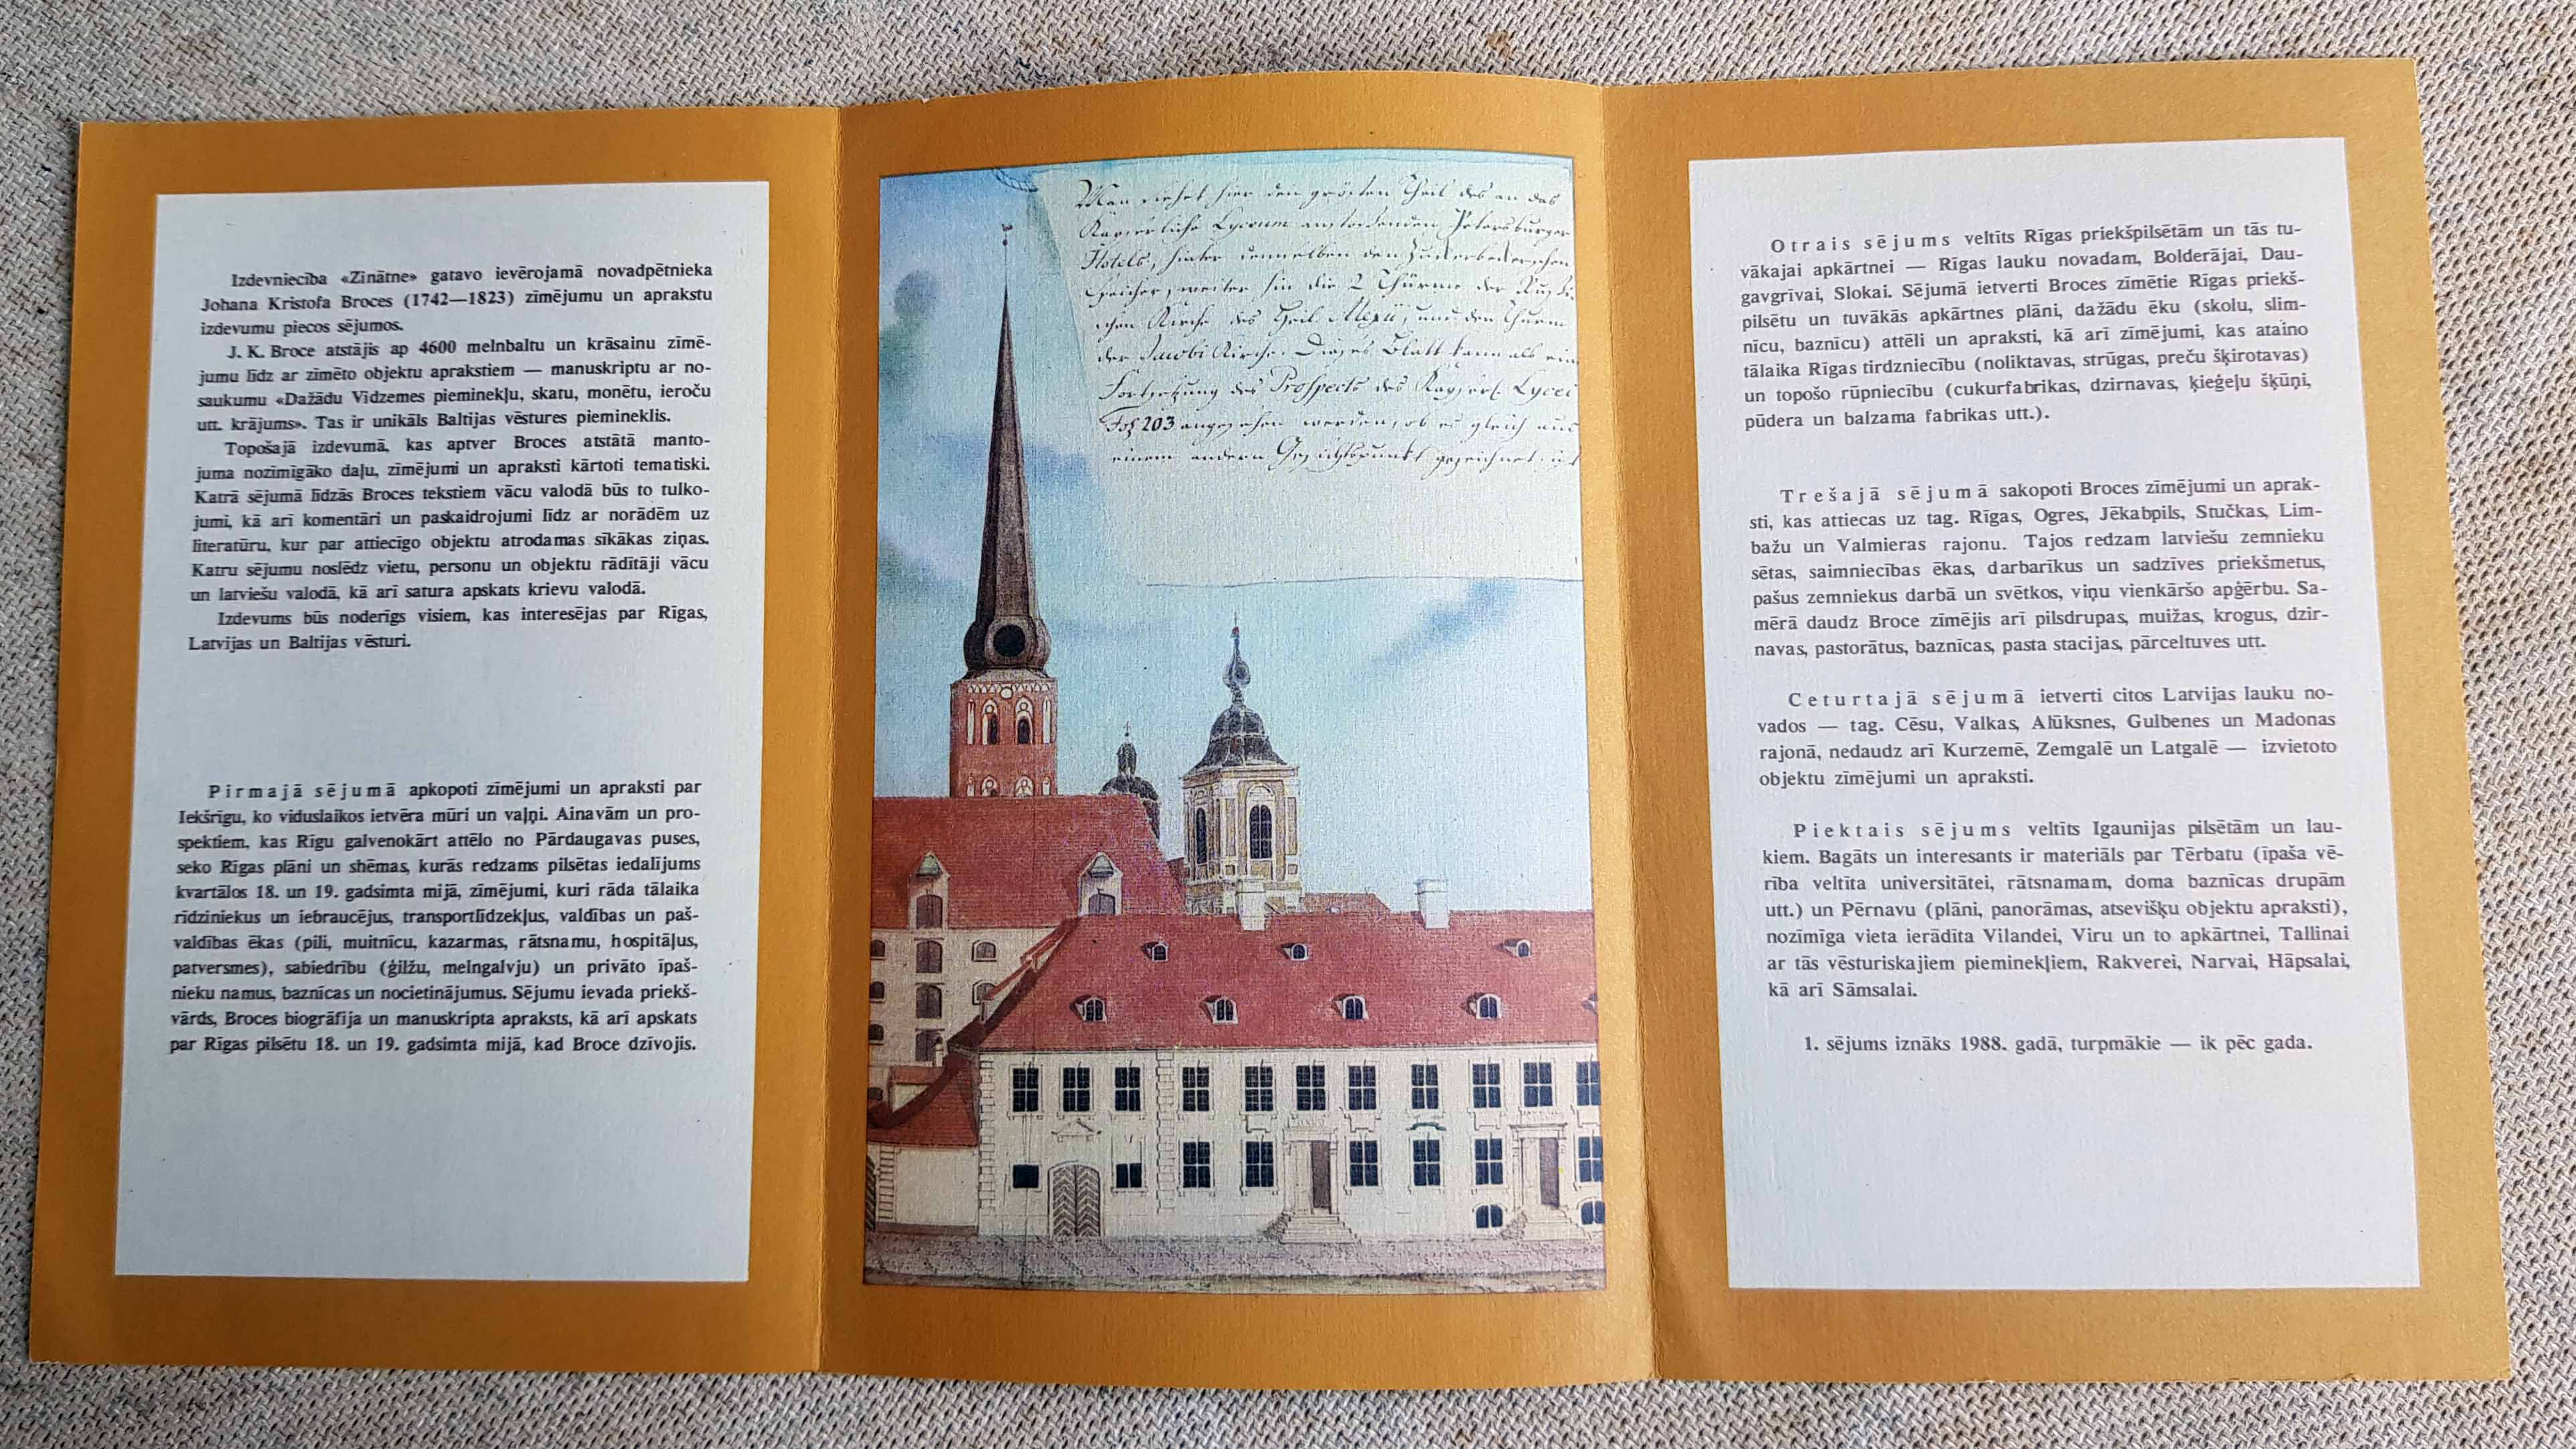 Izdevniecība «Zinātne» gatavo ievērojamā novadpētnieka
Johana Kristofa Broces (1742—1823) zīmējumu un aprakstu
izdevumu piecos sējumos.
J. K. Broce atstājis ap 4600 melnbaltu un krāsainu zīmē-
jumu līdz ar zīmēto objektu aprakstiem — manuskriptu ar no-
saukumu «Dažādu Vidzemes pieminekļu, skatu, monētu, ieroču
utt. krājums». Tas ir unikāls Baltijas vēstures piemineklis.
Topošajā izdevumā, kas aptver Broces atstātā manto-
juma nozīmīgāko daļu, zīmējumi un apraksti kārtoti tematiski.
Katrā sējumā līdzās Broces tekstiem vācu valodā būs to tulko-
jumi, kā arī komentāri un paskaidrojumi līdz ar norādēm uz
literatūru, kur par attiecīgo objektu atrodamas sīkākas ziņas.
Katru sējumu noslēdz vietu, personu un objektu rādītāji vācu
un latviešu valodā, kā arī satura apskats krievu valodā.
Izdevums būs noderīgs visiem, kas interesējas par Rīgas,
Latvijas un Baltijas vēsturi.
Pirmajā sējumā apkopoti zīmējumi un apraksti par
Iekšrīgu, ko viduslaikos ietvēra mūri un vaļņi. Ainavām un pro-
spektiem, kas Rīgu galvenokārt attēlo no Pārdaugavas puses,
seko Rīgas plāni un shēmas, kurās redzams pilsētas iedalījums
kvartālos 18. un 19. gadsimta mijā, zīmējumi, kuri rāda tālaika
rīdziniekus un iebraucējus, transportlīdzekļus, valdības un paš-
valdības ēkas (pili, muitnīcu, kazarmas, rātsnamu, hospitāļus,
patversmes), sabiedrību (ģilžu, melngalvju) un privāto īpaš-
nieku namus, baznīcas un nocietinājumus. Sējumu ievada priekš-
vārds, Broces biogrāfija un manuskripta apraksts, kā arī apskats
par Rīgas pilsētu 18. un 19. gadsimta mijā, kad Broce dzīvojis.
Man siehet hier den grösten Theil des an das
Kayserliche Lyceum anstossenden Petersburger
Hotels, hinter demselben den Zuckerbeckerschen
Speicher, weiter hin die 2 Thürme der Russi-
schen Kirche des Heil. Alexii, und den Thurm
der Jacobi Kirche. Dieses Blatt kann als eine
Fortsetzung des Prospects des Kayserl. Lycei
Fol. 203 angesehen werden, ob es gleich aus
einem andern Gesichtspunkt gezeichnet ist
Otrais sējums veltīts Rīgas priekšpilsētām un tās tu-
vākajai apkārtnei — Rīgas lauku novadam, Bolderājai, Dau-
gavgrīvai, Slokai. Sējumā ietverti Broces zīmētie Rīgas priekš-
pilsētu un tuvākās apkārtnes plāni, dažādu ēku (skolu, slim-
nīcu, baznīcu) attēli un apraksti, kā arī zīmējumi, kas ataino
tālaika Rīgas tirdzniecību (noliktavas, strūgas, preču šķirotavas)
un topošo rūpniecību (cukurfabrikas, dzirnavas, ķieģeļu šķūņi,
pūdera un balzama fabrikas utt.).
Trešajā sējumā sakopoti Broces zīmējumi un aprak-
sti, kas attiecas uz tag. Rīgas, Ogres, Jēkabpils, Stučkas, Lim-
bažu un Valmieras rajonu. Tajos redzam latviešu zemnieku
sētas, saimniecības ēkas, darbarīkus un sadzīves priekšmetus,
pašus zemniekus darbā un svētkos, viņu vienkāršo apģērbu. Sa-
mērā daudz Broce zīmējis arī pilsdrupas, muižas, krogus, dzir-
navas, pastorātus, baznīcas, pasta stacijas, pārceltuves utt.
Ceturtajā sējumā ietverti citos Latvijas lauku no-
vados — tag. Cēsu, Valkas, Alūksnes, Gulbenes un Madonas
rajonā, nedaudz arī Kurzemē, Zemgalē un Latgalē — izvietoto
objektu zīmējumi un apraksti.
Piektais sējums veltīts Igaunijas pilsētām un lau-
kiem. Bagāts un interesants ir materiāls par Tērbatu (īpaša vē-
rība veltīta universitātei, rātsnamam, doma baznīcas drupām
utt.) un Pērnavu (plāni, panorāmas, atsevišķu objektu apraksti),
nozīmīga vieta ierādīta Vilandei, Viru un to apkārtnei, Tallinai
ar tās vēsturiskajiem pieminekļiem, Rakverei, Narvai, Hāpsalai,
kā arī Sāmsalai.
1. sējums iznāks 1988. gadā, turpmākie — ik pēc gada.